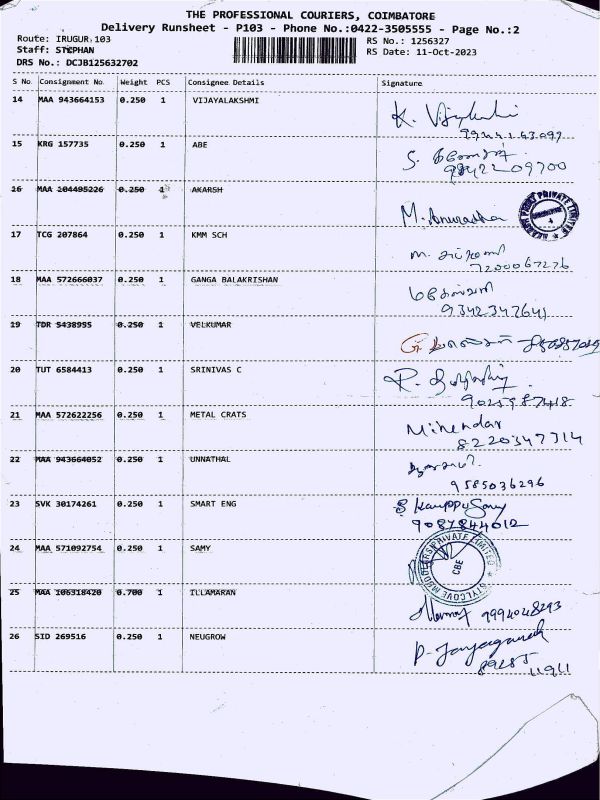 THE PROFESSIONAL COURIERS, COIMBATORE
Delivery Runsheet - P103 - Phone No.:0422-3505555 - Page No.:2
Route: IRUGUR 103
RS No.: 1256327
Staff: STEPHAN
RS Date: 11-Oct-2023
DRS No.: DCJB125632702
S No Consignment No. Weight PCS Consignee Details Signature
14 MAA 943664153 0.250 1 VIJAYALAKSHMI
K.
15 KRG 157735 0.250 1 ABE
S.
16 MAA 104495226 0.250 1 AKARSH
M. Anuradha
17 TCG 207864 0.250 1 KMM SCH
7200067276
18 MAA 572666037 0.250 1 GANGA BALAKRISHAN
9342347641
19 TDR 5438955 0.250 1 VELKUMAR
20 TUT 6584413 0.250 1 SRINIVAS C
R.
9025987418
21 MAA 572622256 0.250 1 METAL CRATS
8220347314
22 MAA 943664052 0.250 1 UNNATHAL
9585036296
23 SVK 30174261 0.250 1 SMART ENG
9087844012
24 MAA 571092754 0.250 1 SAMY
PRIVATE LIMITED
CBE
25 MAA 106318420 0.700 1 ILLAMARAN
9994048293
26 SID 269516 0.250 1 NEUGROW
P.